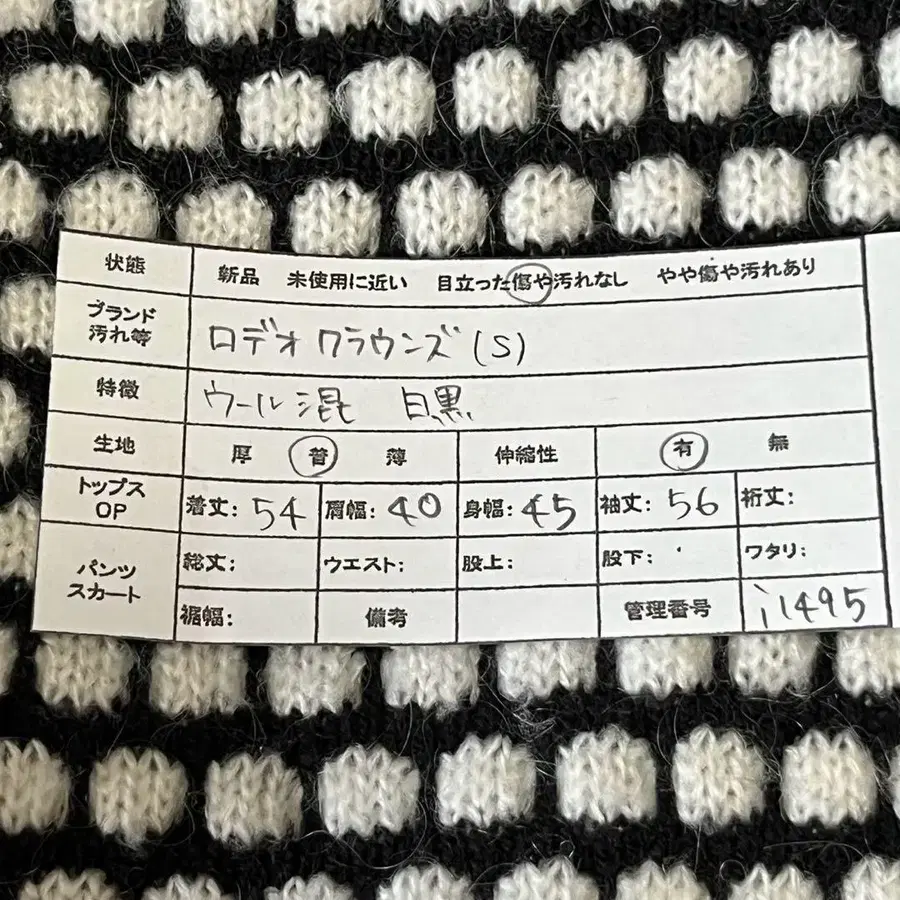 状態 新品 未使用に近い 目立った傷や汚れなし やや傷や汚れあり
ブランド
汚れ等 ロデオクラウンズ(S)
特徴 ウール混 白黒
生地 厚 普 薄 伸縮性 有 無
トップス
OP 着丈: 54 肩幅: 40 身幅: 45 袖丈: 56 裄丈:
パンツ
スカート 総丈: ウエスト: 股上: 股下: ワタリ:
裾幅: 備考 管理番号 i1495